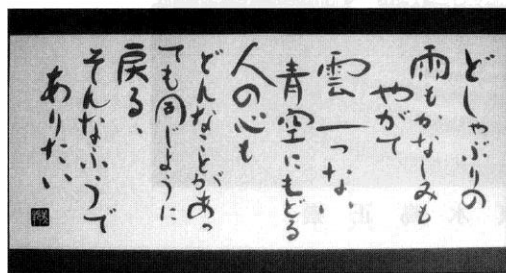 どしゃぶりの
雨もかなしみも
やがて
雲一つない
青空にもどる
人の心も
どんなことがあっ
ても同じように
戻る、
そんなふうで
ありたい